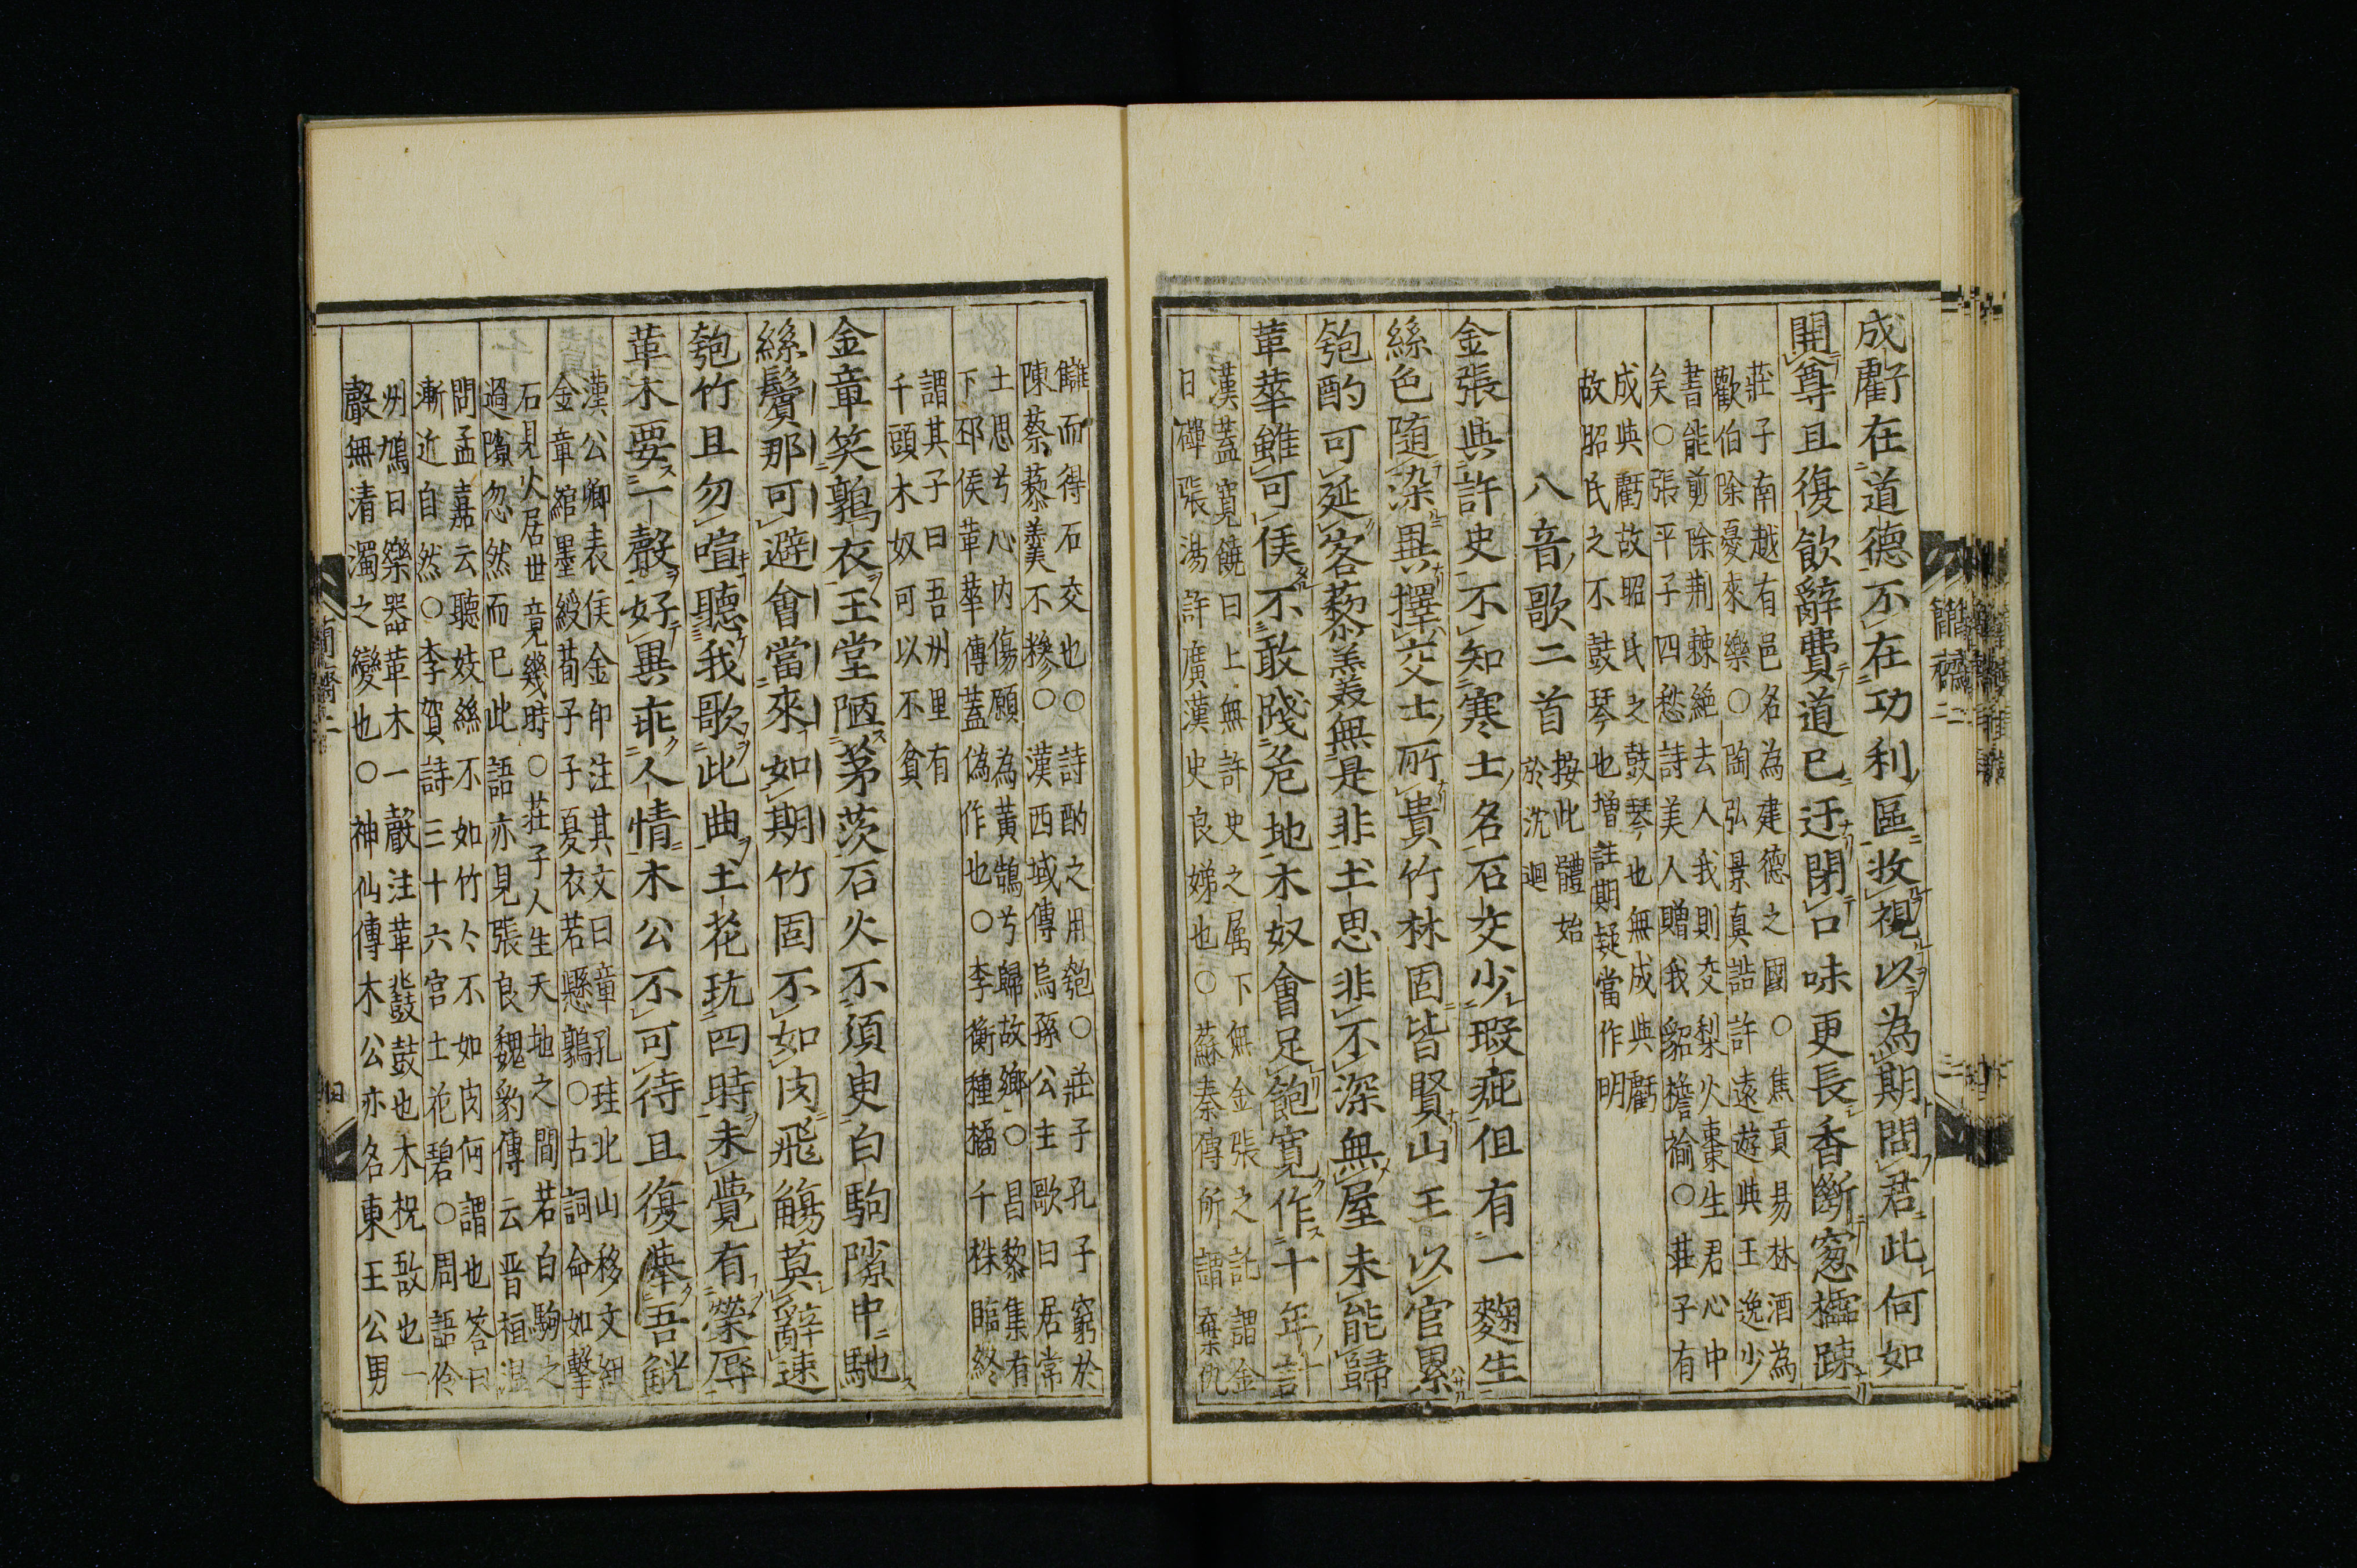 成虧在道德不在功利區牧視以為期問君此何如
開尊且復飲辭費道已迂閉口味更長香斷窓櫺踈
莊子南越有邑名為建德之國○焦貢易林酒為
歡伯除憂來樂○陶弘景真誥許遠遊與王逸少
書能剪除荆棘絶去人我則交梨火棗生君心中
矣○張平子四愁詩美人贈我貂襜褕○莊子有
成與虧故昭氏之鼓琴也無成與虧
故昭氏之不鼓琴也増註期疑當作明
八音歌二首
按此體始
於沈逈
金張與許史不知寒士名石交少瑕疵但有一麴生
絲色随染異擇交士所貴竹林固皆賢山王以官累
匏酌可延客藜羹無是非土思非不深無屋未能歸
革華雖可侯不敢踐危地木奴會足飽寛作十年計
漢蓋寛饒曰上無許史之属下無金張之託謂金
日磾張湯許廣漢史良娣也○蘇秦傳所謂棄仇
讎而得石交也○詩酌之用匏○莊子孔子窮於
陳蔡藜羹不糝○漢西域傳烏孫公主歌曰居常
土思兮心内傷願為黃鵠兮歸故郷○昌黎集有
下邳侯革華傳蓋偽作也○李衡種橘千株臨終
謂其子曰吾州里有
千頭木奴可以不貧
金章笑鶉衣玉堂陋茅茨石火不須吏白駒隙中馳
絲鬢那可避會當來如期竹固不如肉飛觴莫辭速
匏竹且勿喧聽我歌此曲土花玩四時未覺有榮辱
革木要一聲好異乖人情木公不可待且復舉吾觥
漢公卿表侯金印注其文曰章孔珪北山移文紐
金章綰墨綬荀子子夏衣若懸鶉○古詞命如鑿
石見火居世竟幾時○莊子人生天地之間若白駒之
過隙忽然而已此語亦見張良魏豹傳云晋桓温
問孟嘉云聽妓絲不如竹竹不如肉何謂也答曰
漸近自然○李賀詩三十六宮土花碧○周語伶
州鳩曰樂器革木一聲注革鼗鼓也木柷敔也一
聲無清濁之變也○神仙傳木公亦名東王公男